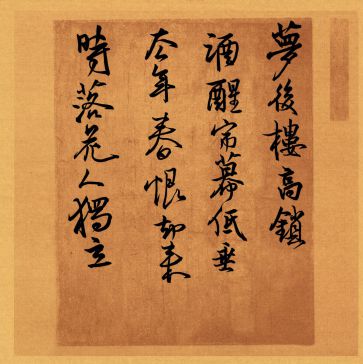 夢後樓高鎖
酒醒帘幕低垂
去年春恨却来
時落花人獨立